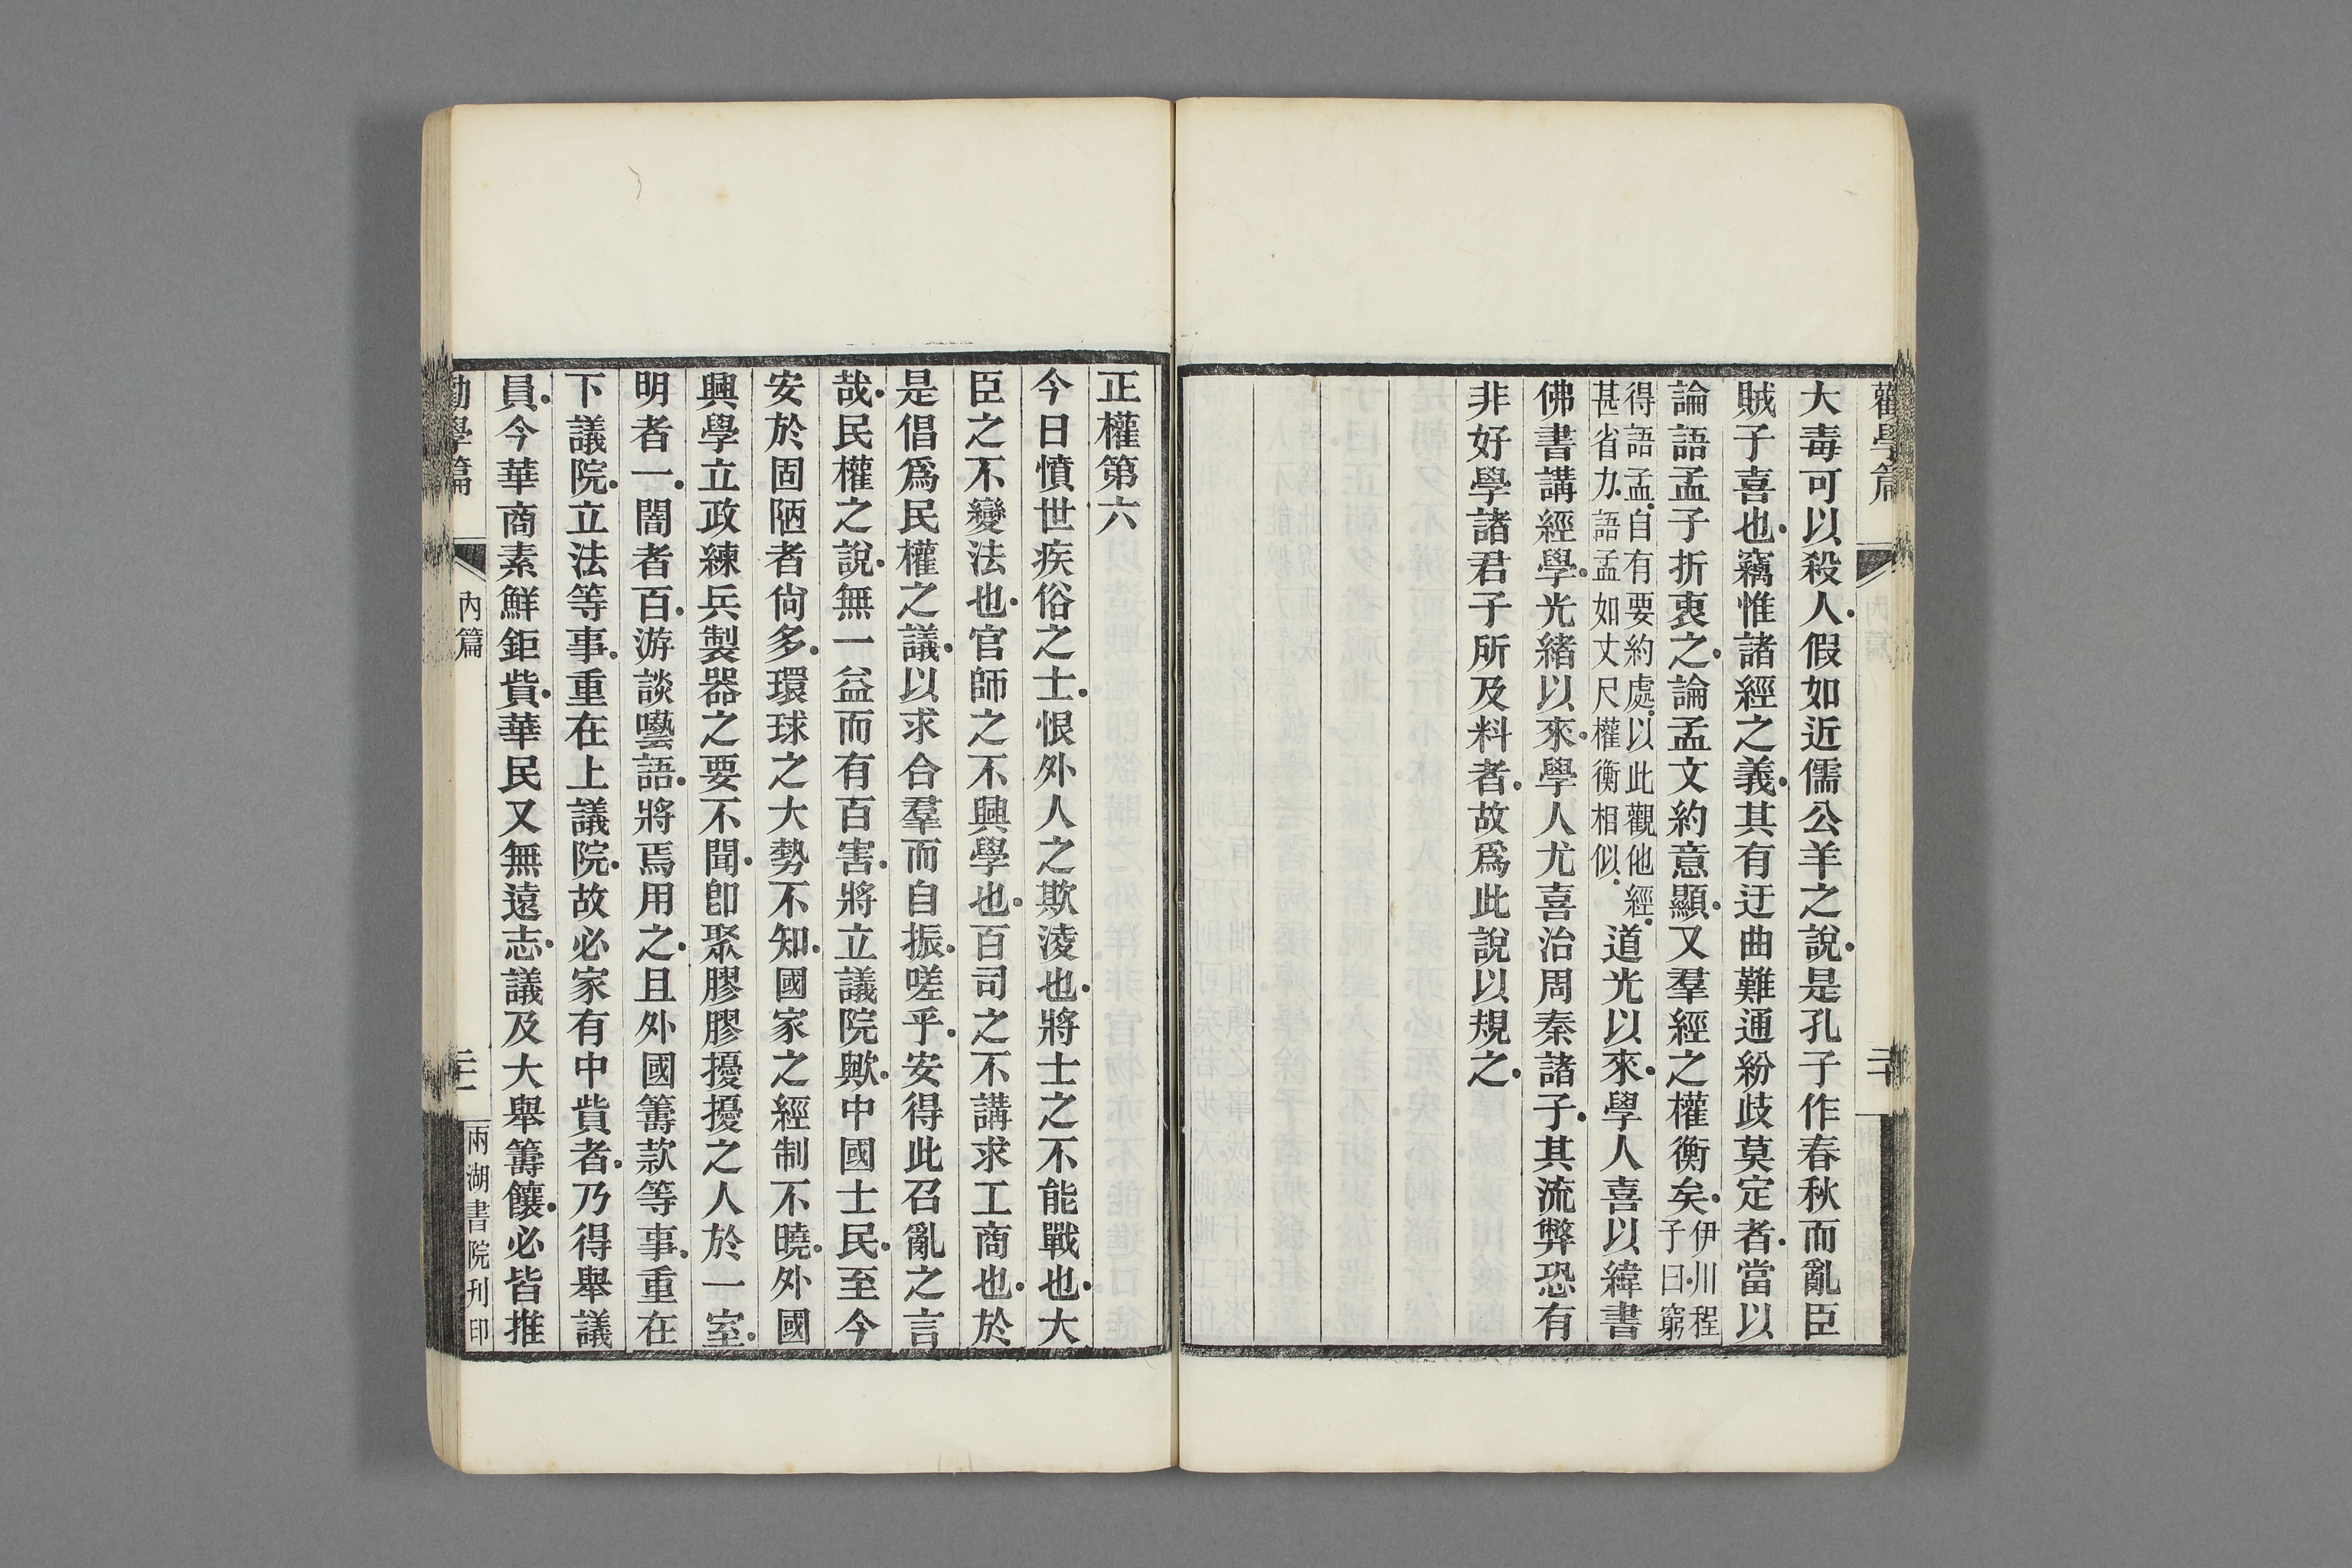 勸學篇
二十
大毒可以殺人假如近儒公羊之說是孔子作春秋而亂臣
賊子喜也竊惟諸經之義其有迂曲難通紛歧莫定者當以
論語孟子折衷之論孟文約意顯又羣經之權衡矣伊川程子曰窮
得語孟自有要約處以此觀他經甚省力語孟如丈尺權衡相似道光以來學人喜以緯書
佛書講經學光緖以來學人尤喜治周秦諸子其流弊恐有
非好學諸君子所及料者故爲此說以規之
正權第六
今日憤世疾俗之士恨外人之欺淩也將士之不能戰也大
臣之不變法也官師之不興學也百司之不講求工商也於
是倡爲民權之議以求合羣而自振嗟乎安得此召亂之言
哉民權之說無一益而有百害將立議院歟中國士民至今
安於固陋者尙多環球之大勢不知國家之經制不曉外國
興學立政練兵製器之要不聞卽聚膠膠擾擾之人於一室
明者一闇者百游談囈語將焉用之且外國籌款等事重在
下議院立法等事重在上議院故必家有中貲者乃得舉議
員今華商素鮮鉅貲華民又無遠志議及大舉籌饟必皆推
勸學篇
內篇
二十一
兩湖書院刊印